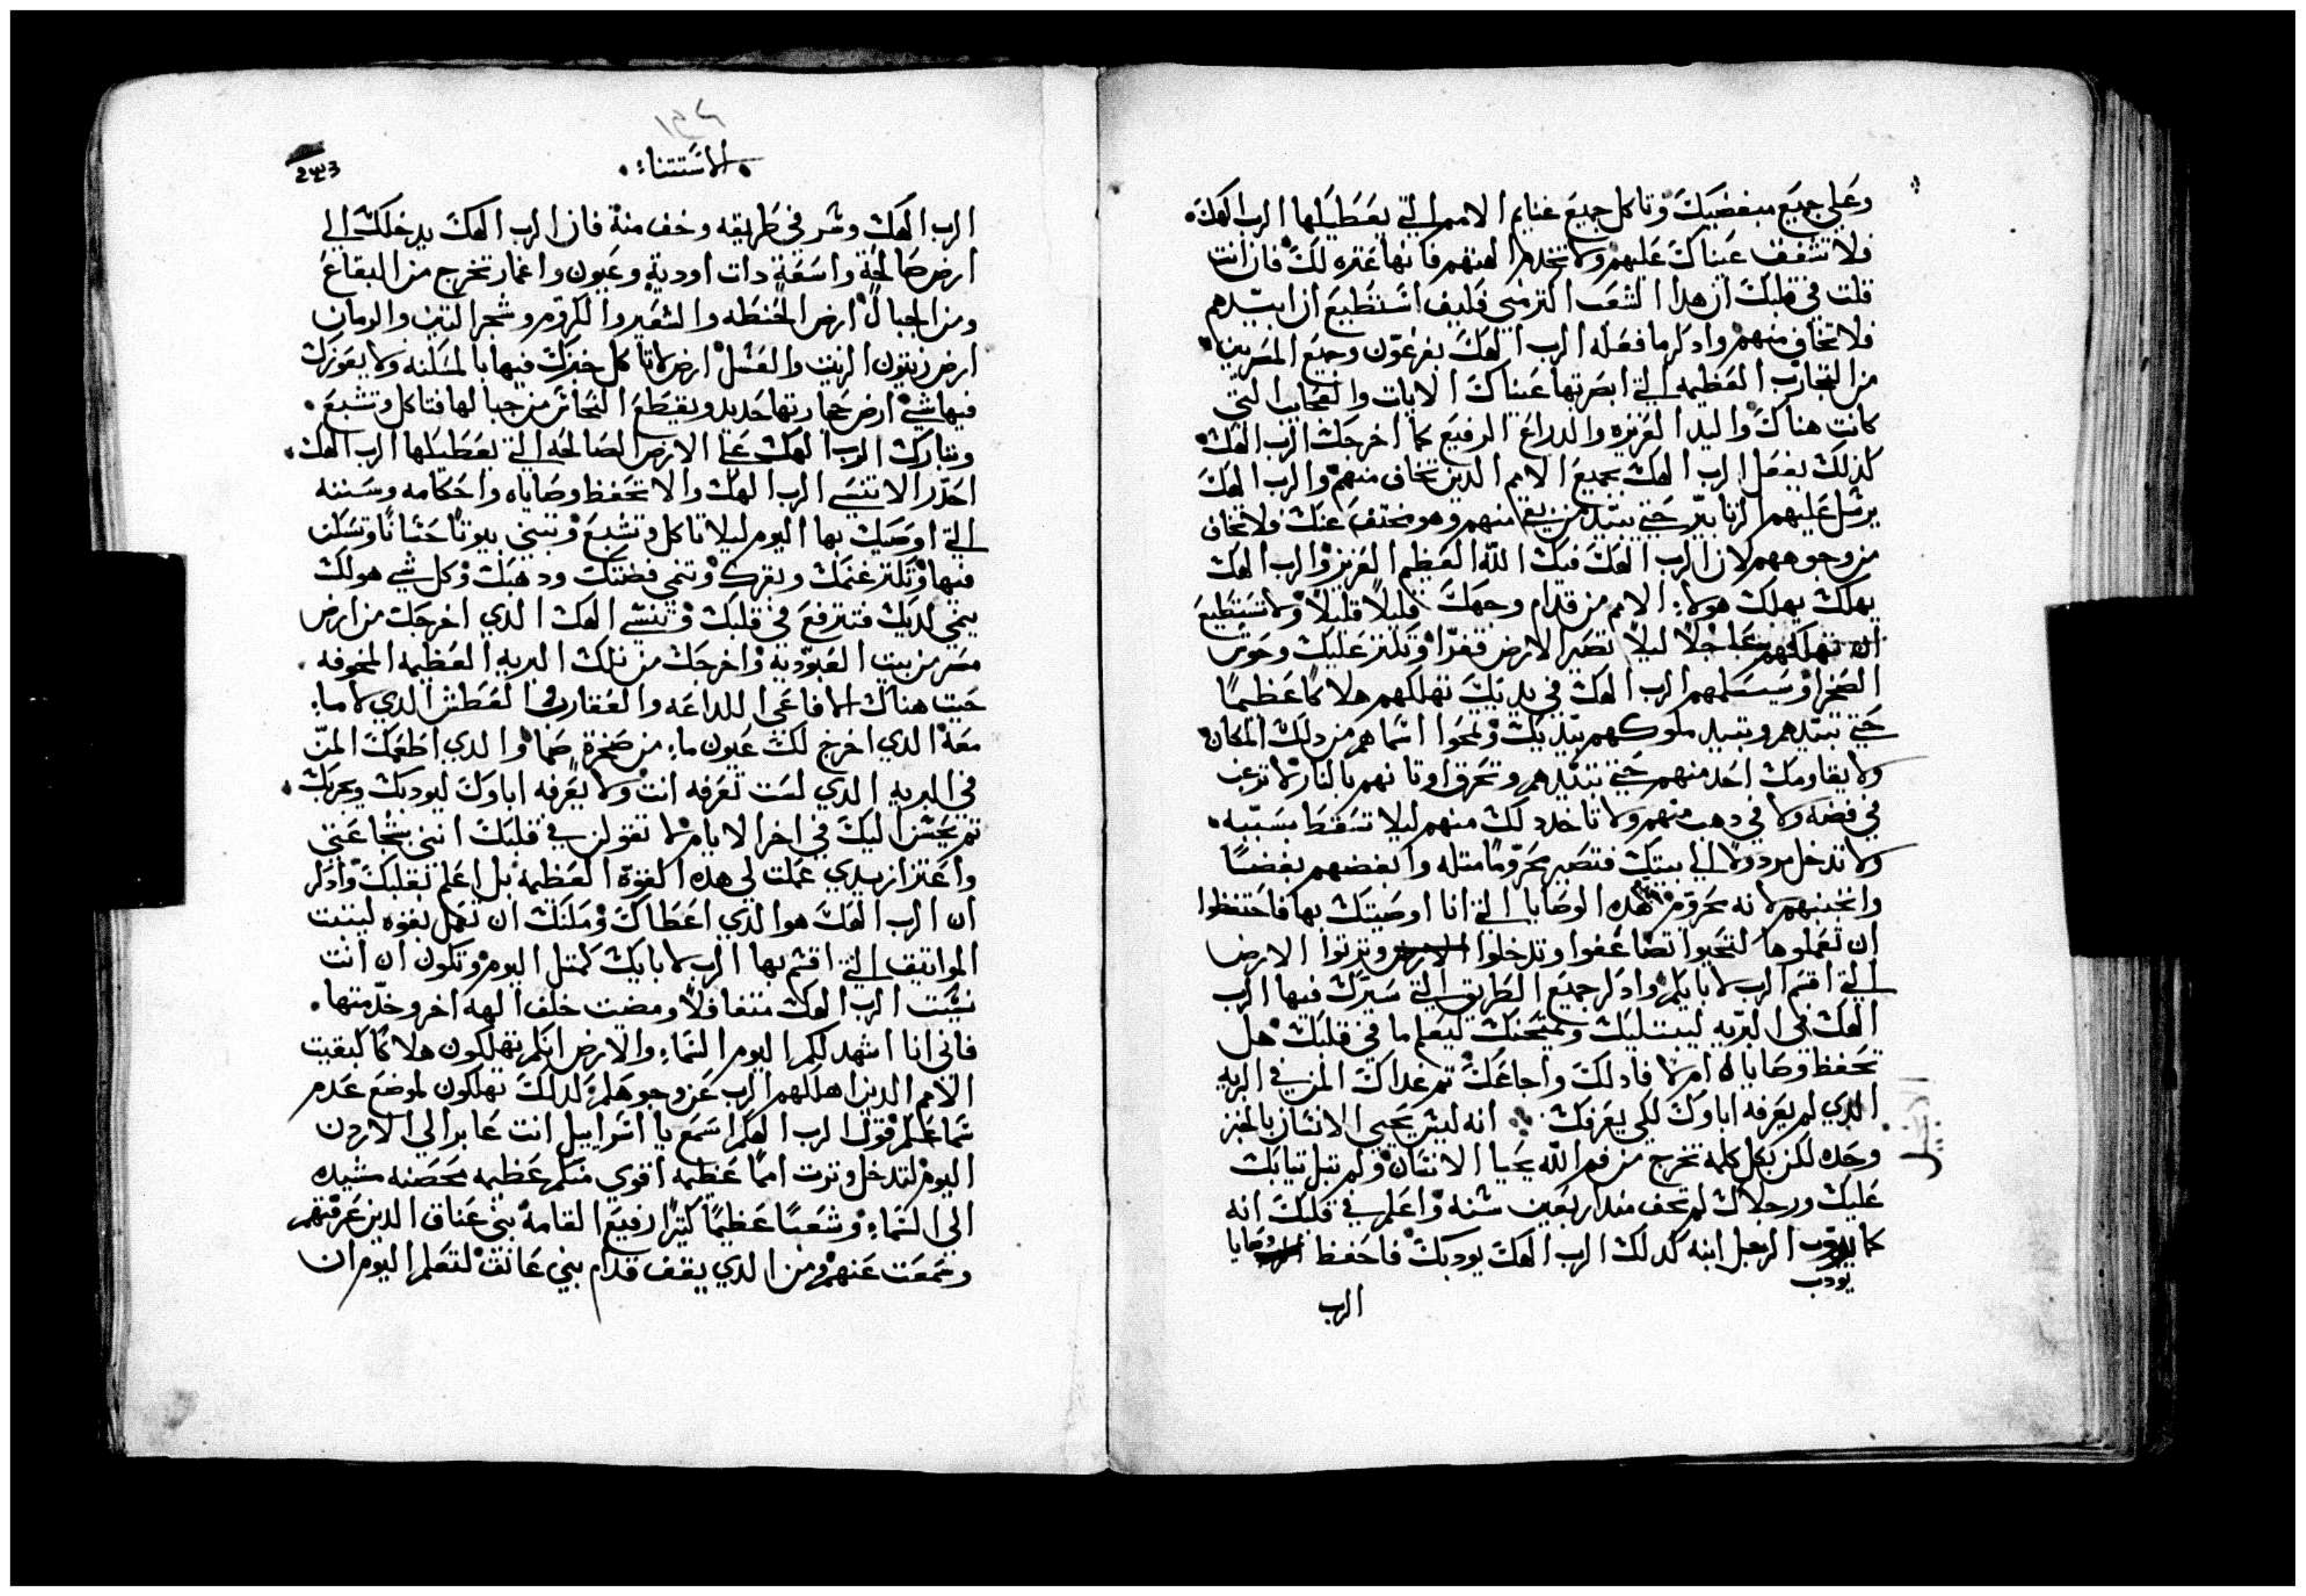 وعلي جميع مبغضيك وتاكل جميع غنايم الامم التي يعطيكها الرب الهك
فلا تشفق عيناك عليهم ولا تخدم الهتهم فانها عتره لك فان انت
قلت في قلبك ان هدا الشعب اكتر مني فكيف استطيع ان ابيدهم
فلا تخاف منهم وادكر ما فعله الرب الهك بفرعون وجميع المصريين
من التجارب العظيمه التي ابصرتها عيناك الايات والعجايب التي
كانت هناك واليد العزيزه والدراع الرفيع كما اخرجك الرب الهك
كدلك يفعل الرب الهك بجميع الامم الدين تخاف منهم والرب الهك
يرسل عليهم الزنابير حتي يبيد من بقي منهم وهو مختف عنك فلا تخاف
من وجوههم لان الرب الهك فيك الله العظيم العزيز والرب الهك
يهلك يهلك هولاء الامم من قدام وجهك قليلاً قليلاً ولا تستطيع
ان تهلكهم عاجلاً ليلا تصير الارض قفراً وتكتر عليك وحوش
الصحرا وسيسلمهم الرب الهك في يديك تهلكهم هلاكاً عظيماً
حتي تبيدهم وتبيد ملوكهم بيديك وتمحوا اسماهم من دلك المكان
ولا يقاومك احد منهم حتي تبيدهم وتحرق اوتانهم بالنار لا ترغب
في فضه ولا في دهب منهم ولا تاخد لك منهم ليلا تسقط بسببه
ولا تدخل مردولا الي بيتك فتصير محروماً متله وابغضهم بغضاً
وانجسهم لانه محروم هده الوصايا التي انا اوصيتك بها فاحتفظوا
ان تعملوها لتحيوا تضاعفوا وتدخلوا وترتوا الارض
التي اقسم الرب لابايكم وادكر جميع الطريق التي سيرك فيها الرب
الهك في البريه ليبتليك ويمتحنك ليعلم ما في قلبك هل
تحفظ وصاياه ام لا فادلك واجاعك تم غداك المن في البريه
الدي لم يعرفه اباوك لكي يعرفك انه ليس يحيي الانسان بالخبز
وحده لكن بكل كلمه تخرج من فم الله يحيا الانسان ولم تبل تيابك
عليك ورجلاك لم تحف مند اربعين سنه واعلم في قلبك انه
كما يودب الرجل ابنه كدلك الرب الهك يودبك فاحفظ وصايا
يودب
الرب
الانجيل
١٤٢
الاستتناء
243
الرب الهك وسر في طريقه وخف منه فان الرب الهك يدخلك الي
ارض صالحة واسعة دات اودية وعيون واغمار تخرج من البقاع
ومن الجبال ارض الحنطه والشعير والكروم وشجر التين والرمان
ارض زيتون الزيت والعسل ارض لا تاكل خبزك فيها بالمسكنه ولا يعوزك
فيها شي ارض حجارتها حديد ويقطع النحاس من جبالها فتاكل وتشبع
وتبارك الرب الهك علي الارض الصالحه التي يعطيكها الرب الهك
احدر الا تنسي الرب الهك والا تحفظ وصاياه واحكامه وسننه
التي اوصيك بها اليوم ليلا تاكل وتشبع وتبني بيوتاً حساناً وتسكن
فيها وتكتر غنمك وبقرك وتنمي فضتك ودهبك وكل شي هو لك
ينمي لديك فترتفع في قلبك وتنسي الهك الدي اخرجك من ارض
مصر من بيت العبوديه واخرجك من تلك البريه العظيمه المخوفه
حيت هناك الافاعي اللداعه والعقارب والعطش الدي لا ماء
معه الدي اخرج لك عيون ماء من صخرة صما والدي اطعمك المن
في البريه الدي لست تعرفه انت ولا يعرفه اباوك ليودبك ويجربك
تم يحسن اليك في اخر الايام لا تقولن في قلبك انني بشجاعتي
واعتزاز يدي عملت لي هده القوة العظيمه بل اعلم بقلبك وادكر
ان الرب الهك هو الدي اعطاك ومكنك ان تعمل بقوه ليتبت
المواتيق التي اقسم بها الرب لابايك كمتل اليوم وتكون ان انت
نسيت الرب الهك متغافلاً ومضيت خلف الهه اخر وخدمتها
فاني انا اشهد لكم اليوم السماء والارض انكم تهلكون هلاكاً كبقيت
الامم الدين اهلكهم الرب عن وجوهكم كدلك تهلكون لموضع عدم
سماعكم قول الرب الهكم اسمع يا اسراييل انت عابر الي الاردن
اليوم لتدخل وترت امماً عظيمه اقوي منكم عظيمه محصنه مشيده
الي السماء وشعباً عظيماً كتيراً رفيع القامة بني عناق الدين عرفتهم
وسمعت عنهم من الدي يقف قدام بني عاناق لتعلم اليوم ان